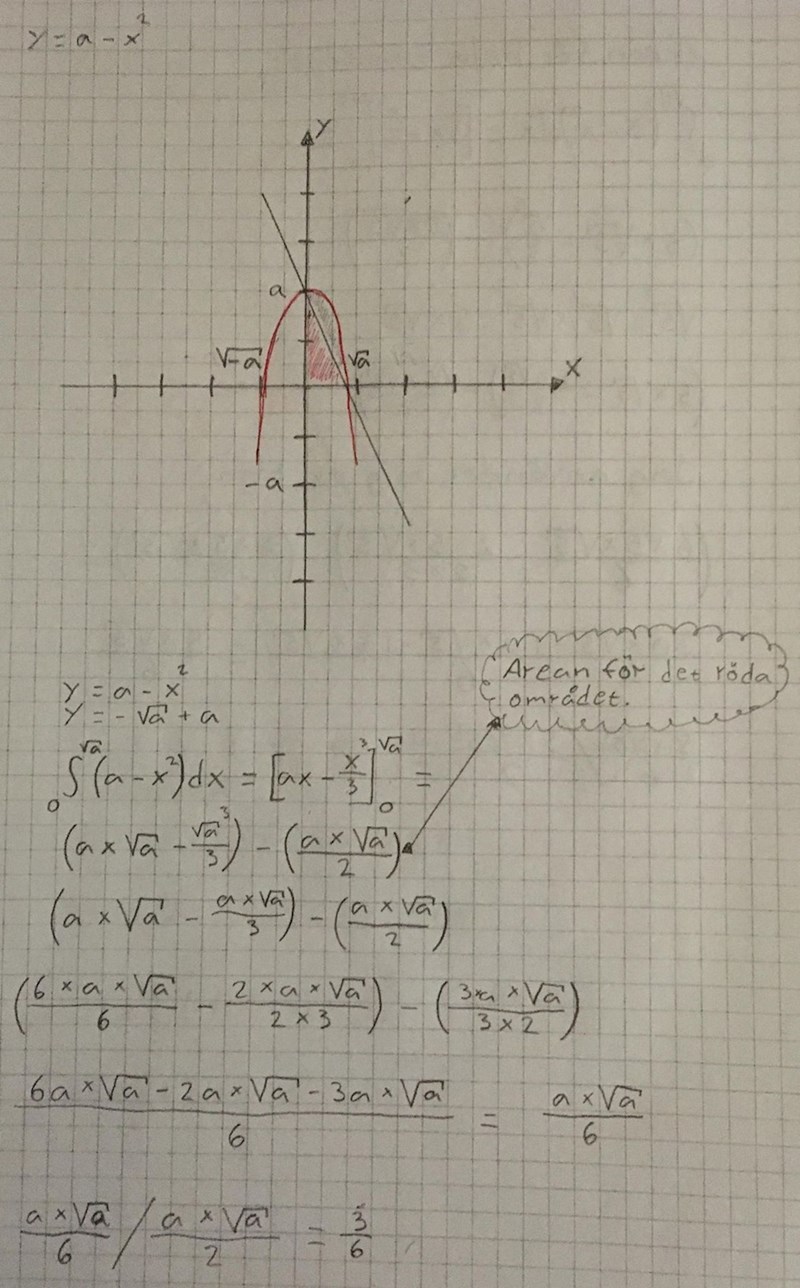 y = a - x²
y
a
√-a
√a
x
-a
Arean för det röda
området.
y = a - x²
y = - √a + a
₀∫^√a (a - x²)dx = [ax - x³/3]₀^√a =
(a × √a - √a³/3) - (a × √a/2)
(a × √a - a × √a/3) - (a × √a/2)
(6 × a × √a/6 - 2 × a × √a/2 × 3) - (3×a × √a/3 × 2)
6a × √a - 2a × √a - 3a × √a/6 = a × √a/6
a × √a/6 / a × √a/2 = 3/6